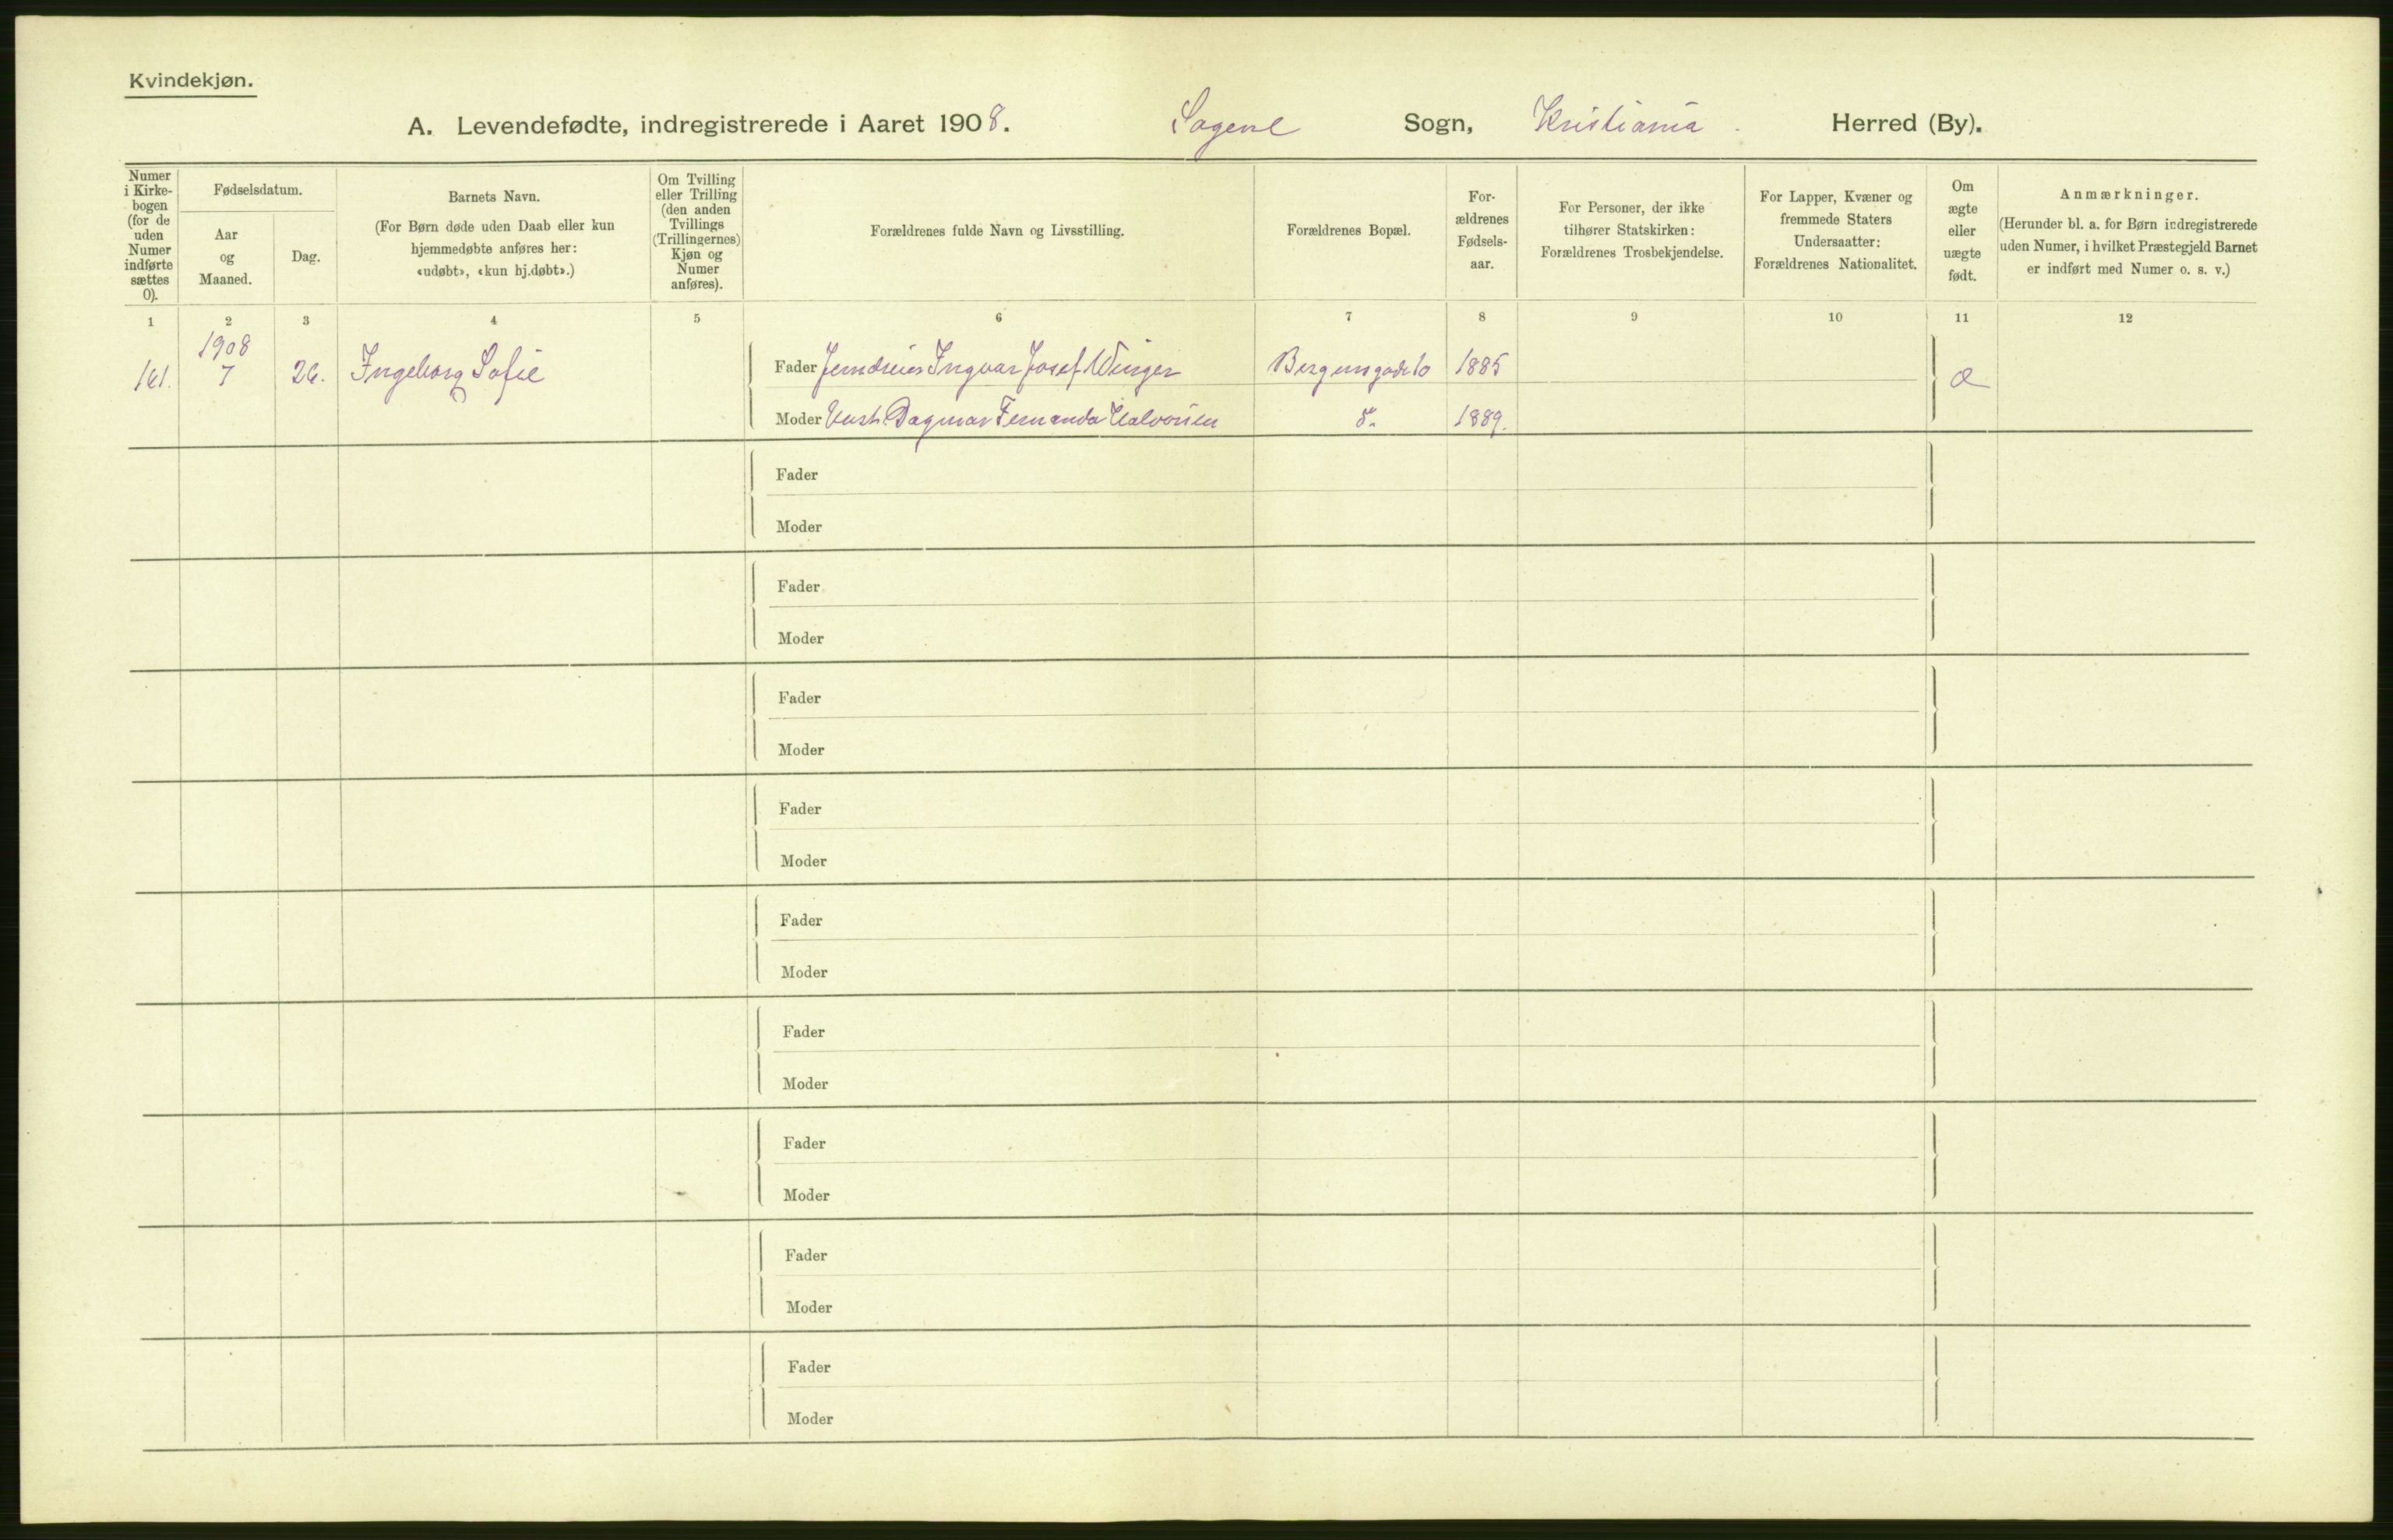 Kvindekjøn.
A. Levendefødte, indregistrerede i Aaret 1908. Sagene Sogn, Kristiania. Herred (By).
Numer i Kirkebogen (for de uden Numer indførte sættes 0).
Fødselsdatum.
Aar og Maaned.
Dag.
Barnets Navn.
(For Børn døde uden Daab eller kun
hjemmedøbte anføres her:
«udøbt», «kun hj.døbt».)
Om Tvilling
eller Trilling
(den anden
Tvillings
(Trillingernes)
Kjøn og
Numer
anføres).
Forældrenes fulde Navn og Livsstilling.
Forældrenes Bopæl.
For-
ældrenes
Fødsels-
aar.
For Personer, der ikke
tilhører Statskirken:
Forældrenes Trosbekjendelse.
For Lapper, Kvæner og
fremmede Staters
Undersaatter:
Forældrenes Nationalitet.
Om
ægte
eller
uægte
født.
Anmærkninger.
(Herunder bl. a. for Børn indregistrerede
uden Numer, i hvilket Præstegjeld Barnet
er indført med Numer o. s. v.)
1 2 3 4 5 6 7 8 9 10 11 12
1908
161. 7 26. Ingeborg Sofie Fader Ingvar Josef Winger Bergensgade 10 1885 æ
Moder Dagmar Fernanda Halvorsen d. 1889.
Fader
Moder
Fader
Moder
Fader
Moder
Fader
Moder
Fader
Moder
Fader
Moder
Fader
Moder
Fader
Moder
Fader
Moder